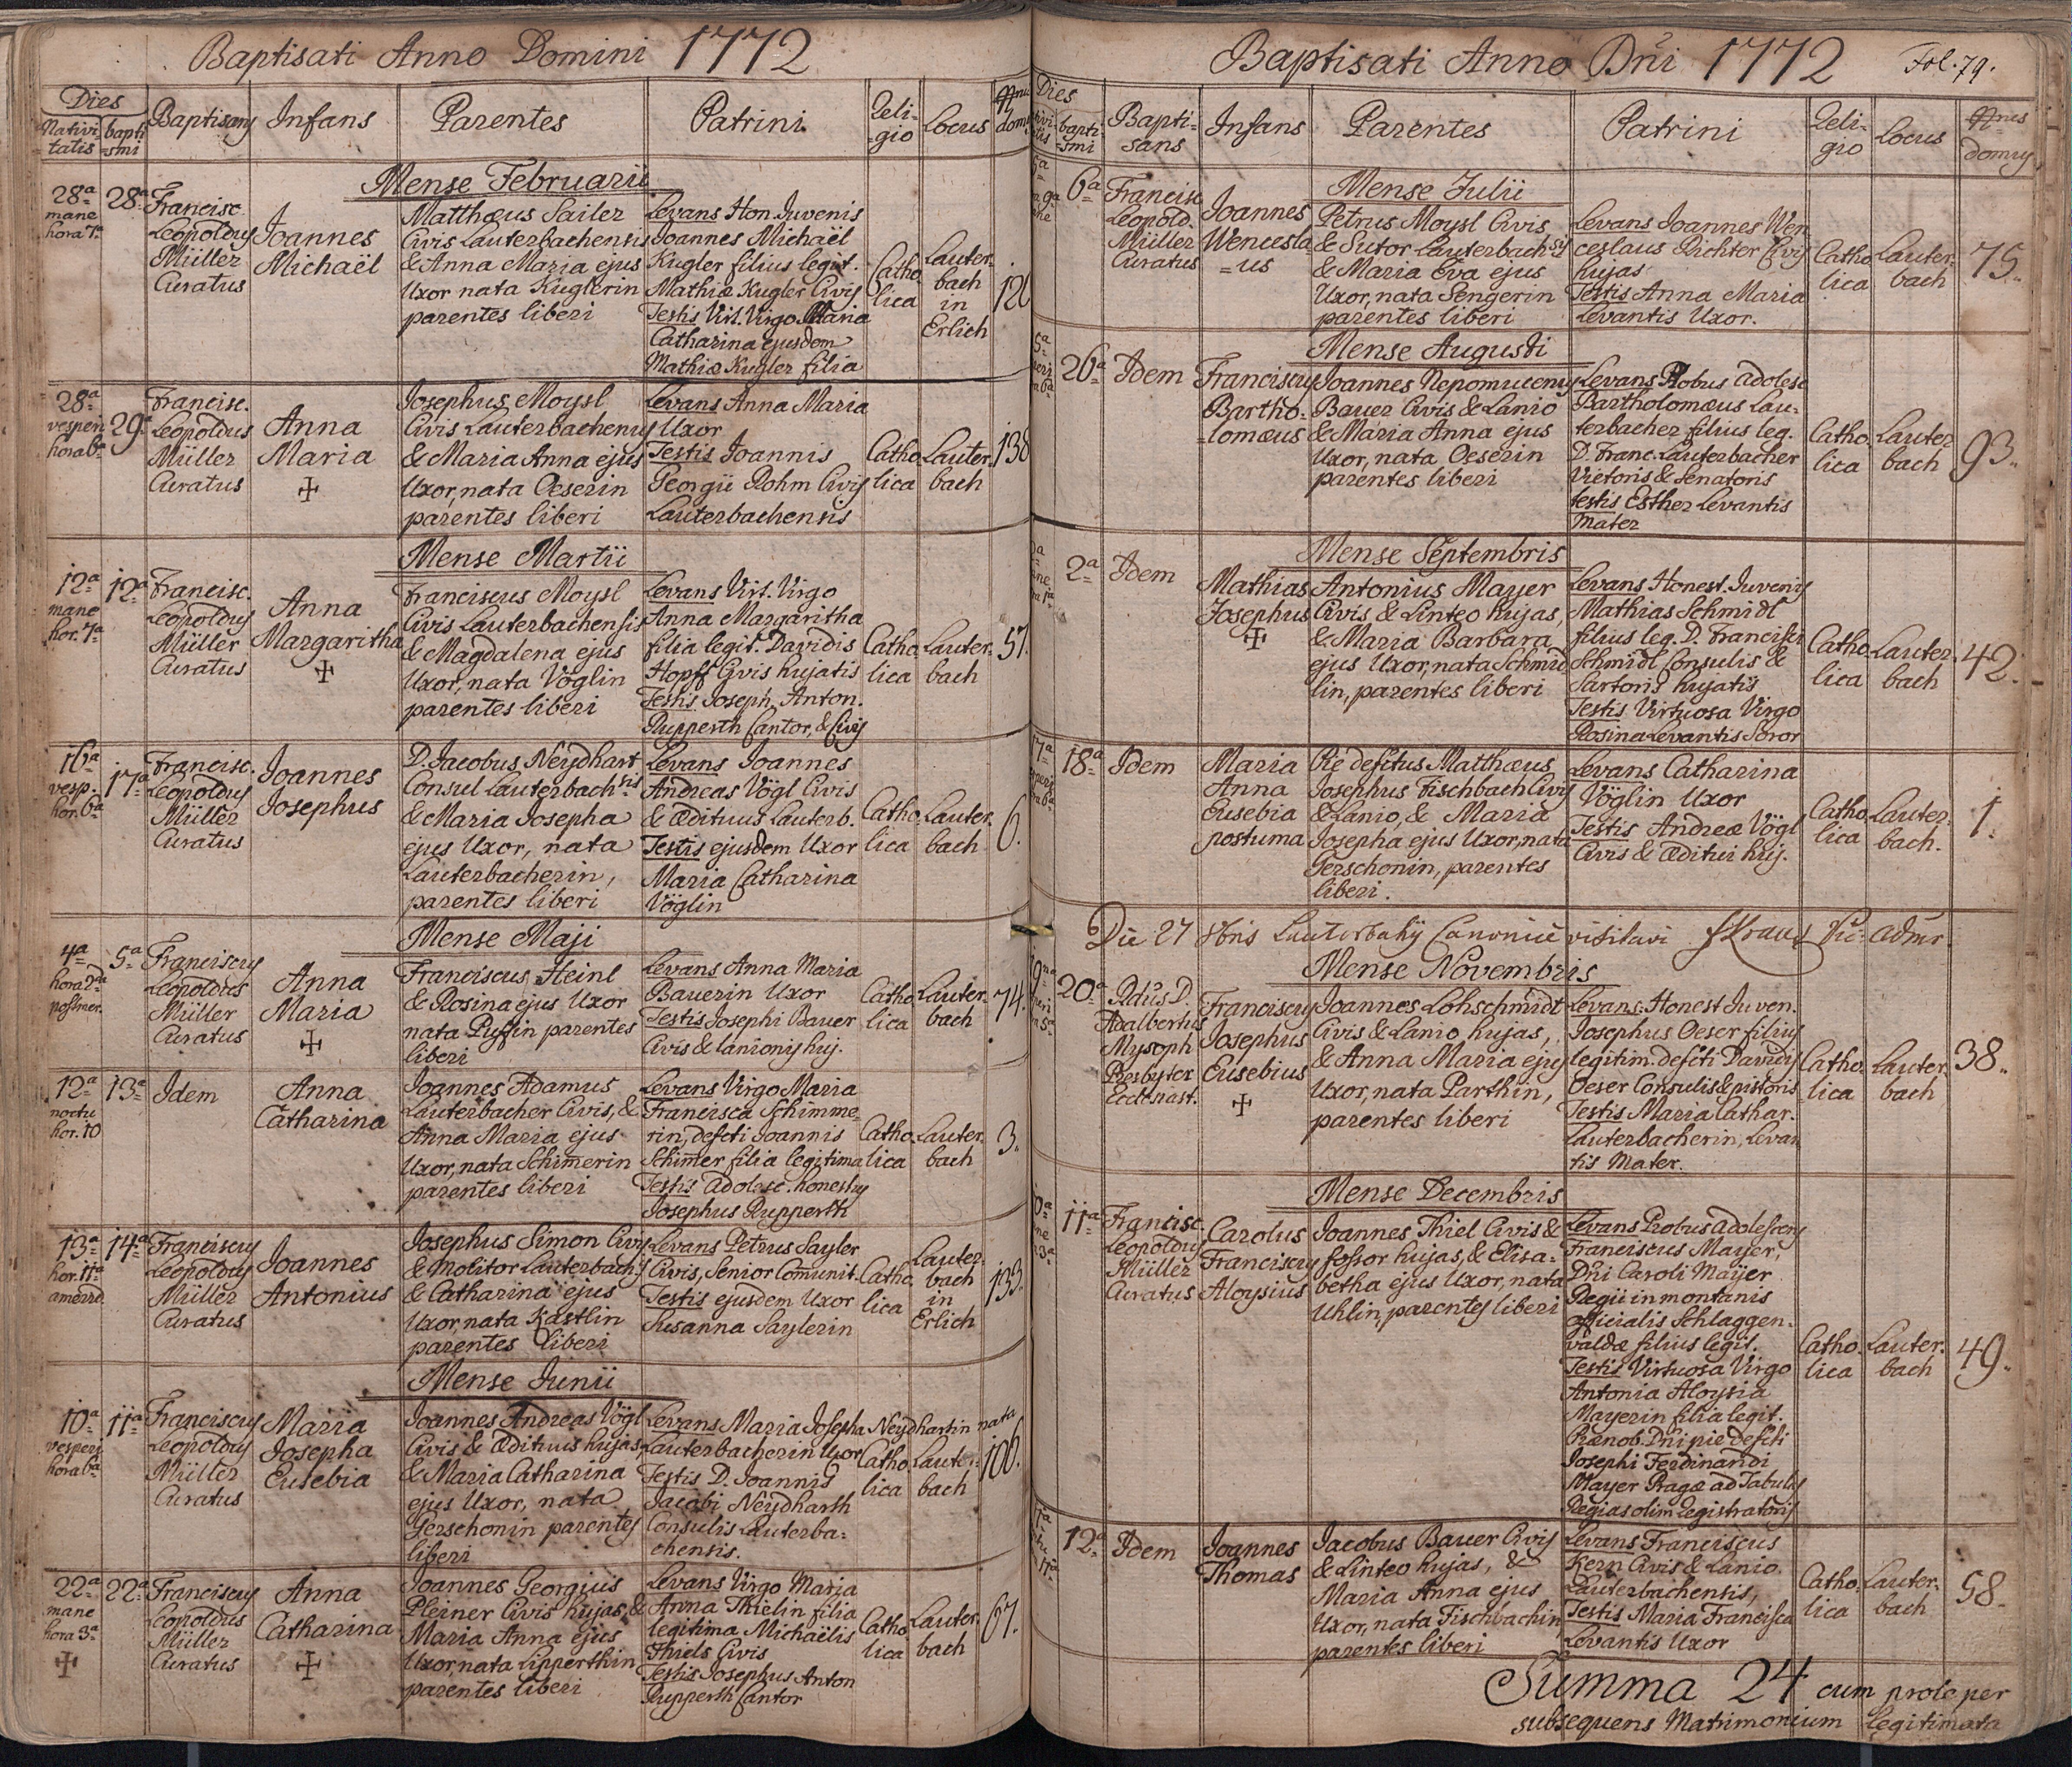 Baptisati Anno Domini 1772
Dies
Nativi=
tatis
bapti
=smi
Baptisans
Infans
Parentes
Patrini
Reli-
gio
Locus
Nrus
dom
Mense Februarii
28a
mane
hora 7a
28a
Francisc.
Leopoldus
Müller
Curatus
Joannes
Michaël
Matthæus Sailer
Civis Lauterbachensis
& Anna Maria ejus
Uxor nata Kuglerin
parentes liberi
Levans Hon. Juvenis
Joannes Michaël
Kugler filius legit.
Mathiæ Kugler Civis
Testis Virt. Virgo Maria
Catharina ejusdem
Mathiæ Kugler filia
Catho
lica
Lauter-
bach
in
Erlich
28a
vesperi
hora 6a
29a
Francisc.
Leopoldus
Müller
Curatus
Anna
Maria
Josephus Moysl
Civis Lauterbachensis
& Maria Anna ejus
Uxor, nata Oeserin
parentes liberi
Levans Anna Maria
Uxor
Testis Joannis
Georgii Rohm Civis
Lauterbachensis
Catho
lica
Lauter.
bach
138
Mense Martii
12a
mane
hor. 7a
12a
Francisc.
Leopoldus
Müller
Curatus
Anna
Margaritha
Franciscus Moysl
Civis Lauterbachensis
& Magdalena ejus
Uxor, nata Vöglin
parentes liberi
Levans Virt. Virgo
Anna Margaritha
filia legit. Davidis
Hopff Civis hujatis
Testis Joseph. Anton.
Rupperth Cantor, & Civis
Catho
lica
Lauter.
bach
57.
16a
vesp.
hor. 6a
17a
Francisc.
Leopoldus
Müller
Curatus
Joannes
Josephus
D. Jacobus Neydhart
Consul Lauterbachsis
& Maria Josepha
ejus Uxor, nata
Lauterbacherin,
parentes liberi
Levans Joannes
Andreas Vögl Civis
& Ædituus Lauterb.
Testis ejusdem Uxor
Maria Catharina
Vöglin
Catho
lica
Lauter.
bach
6.
Mense Maji
4a
hora 2da
postmer.
5a
Franciscus
Leopoldus
Müller
Curatus
Anna
Maria
Franciscus Heinl
& Rosina ejus Uxor
nata Puffin parentes
liberi
Levans Anna Maria
Bauerin Uxor
Testis Josephi Bauer
Civis & Lanionis huj.
Catho
lica
Lauter.
bach
74.
12a
noctu
hor. 10
13a
Idem
Anna
Catharina
Joannes Adamus
Lauterbacher Civis, &
Anna Maria ejus
Uxor, nata Schimerin
parentes liberi
Levans Virgo Maria
Francisca Schimme
rin, defcti Joannis
Schimer filia legitima
Testis Adolesc. honestus
Josephus Rupperth
Catho
lica
Lauter.
bach
3.
13a
hor. 11a
14a
Franciscus
Leopoldus
Müller
Curatus
Joannes
Antonius
Josephus Simon Civis
& Molitor Lauterbachs
& Catharina ejus
Uxor, nata Kästlin
parentes liberi
Levans Petrus Sayler
Civis, Senior Comunit.
Testis ejusdem Uxor
Susanna Saylerin
Catho
lica
Lauter
bach
in
Erlich
133.
Mense Junii
10a
vesperi
hora 6a
11a
Franciscus
Leopoldus
Müller
Curatus
Maria
Josepha
Eusebia
Joannes Andreas Vögl
Civis & Ædituus hujas,
& Maria Catharina
ejus Uxor, nata
Gerschonin parentes
liberi
Levans Maria Josepha Neydhartin nata
Lauterbacherin Uxor
Testis D. Joannis
Jacobi Neydharth
Consulis Lauterba=
chensis.
Catho
lica
Lauter.
bach
106.
22a
mane
hora 3a
22a
Franciscus
Leopoldus
Müller
Curatus
Anna
Catharina
Joannes Georgius
Pleiner Civis hujas &
Maria Anna ejus
Uxor nata Lipperthin
parentes liberi
Levans Virgo Maria
Anna Thielin filia
legitima Michaëlis
Thiels Civis
Testis Josephus Anton
Rupperth Cantor
Catho
lica
Lauter.
bach
67.
Baptisati Anno Dni 1772
Fol. 79.
Dies
bapti
=smi
Bapti-
sans
Infans
Parentes
Patrini
Reli-
gio
Locus
Nrus
domus
Mense Julii
6a
Francisc
Leopold.
Müller
Curatus
Joannes
Wencesla
=us
Petrus Moysl Civis
& Sutor Lauterbachsis
& Maria Eva ejus
Uxor, nata Sengerin
parentes liberi
Levans Joannes Wen
ceslaus Richter Civis
hujas
Testis Anna Maria
Levantis Uxor.
Catho
lica
Lauter.
bach
75.
Mense Augusti
26a
Idem
Franciscus
Bartho=
=lomæus
Joannes Nepomucenus
Bauer Civis & Lanio
& Maria Anna ejus
Uxor, nata Oeserin
parentes liberi
Levans Probus Adolesc
Bartholomæus Lau=
terbacher filius leg.
D. Franc. Lauterbacher
Vietoris & Senatoris
testis Esther Levantis
Mater
Catho.
lica
Lauter
bach
93.
Mense Septembris
2a
Idem
Mathias
Josephus
Antonius Mayer
Civis & Linteo hujas,
& Maria Barbara
ejus Uxor, nata Schmid
lin, parentes liberi
Levans Honest. Juvenis
Mathias Schmidl
filius leg. D. Francisci
Schmidl Consulis &
Sartoris hujatis
Testis Virtuosa Virgo
Rosina Levantis Soror
Catho.
lica
Lauter.
bach
42.
18a
Idem
Maria
Anna
Eusebia
postuma
Pie defctus Matthæus
Josephus Fischbach Civis
& Lanio, & Maria
Josepha ejus Uxor, nata
Gerschonin, parentes
liberi.
Levans Catharina
Vöglin Uxor
Testis Andreæ Vögl
Civis & Æditui huj.
Catho.
lica
Lauter-
bach.
1.
Die 27 8bris Lauterbahy Canonice visitavi JKraus Vic: admr.
Mense Novembris
20a
Rdus D.
Adalbertus
Mysoph
Presbyter
Franciscus
Josephus
Eusebius
Joannes Lohschmidt
Civis & Lanio hujas,
& Anna Maria ejus
Uxor, nata Parthin,
parentes liberi
Levans. Honest Juven.
Josephus Oeser filius
legitim. defcti Davidis
Oeser Consulis & pistoris
Testis Maria Cathar.
Lauterbacherin, Levan
tis Mater.
Catho.
lica
Lauter.
bach
38.
Mense Decembris
11a
Francisc.
Leopoldus
Müller
Curatus
Carolus
Franciscus
Aloysius
Joannes Thiel Civis &
fossor hujas, & Elisa=
betha ejus Uxor, nata
Uhlin, parentes liberi
Levans Probus Adolescens
Franciscus Mayer,
Dni Caroli Mayer
Regii in montanis
officialis Schlaggen=
valdæ filius legit.
Testis Virtuosa Virgo
Antonia Aloysia
Mayerin filia legit.
Prænob. Dni pie defcti
Josephi Ferdinandi
Mayer Pragæ ad Tabulas
Regias olim Registratoris
Catho.
lica
Lauter.
bach
49.
12a
Idem
Joannes
Thomas
Jacobus Bauer Civis
& Linteo hujas, &
Maria Anna ejus
Uxor, nata Fischbachin
parentes liberi
Levans Franciscus
Kern Civis & Lanio
Lauterbachensis,
Testis Maria Francisca
Levantis Uxor
Catho.
lica
Lauter-
bach
58.
Summa 24 cum prole per
subsequens Matrimonium legitimata